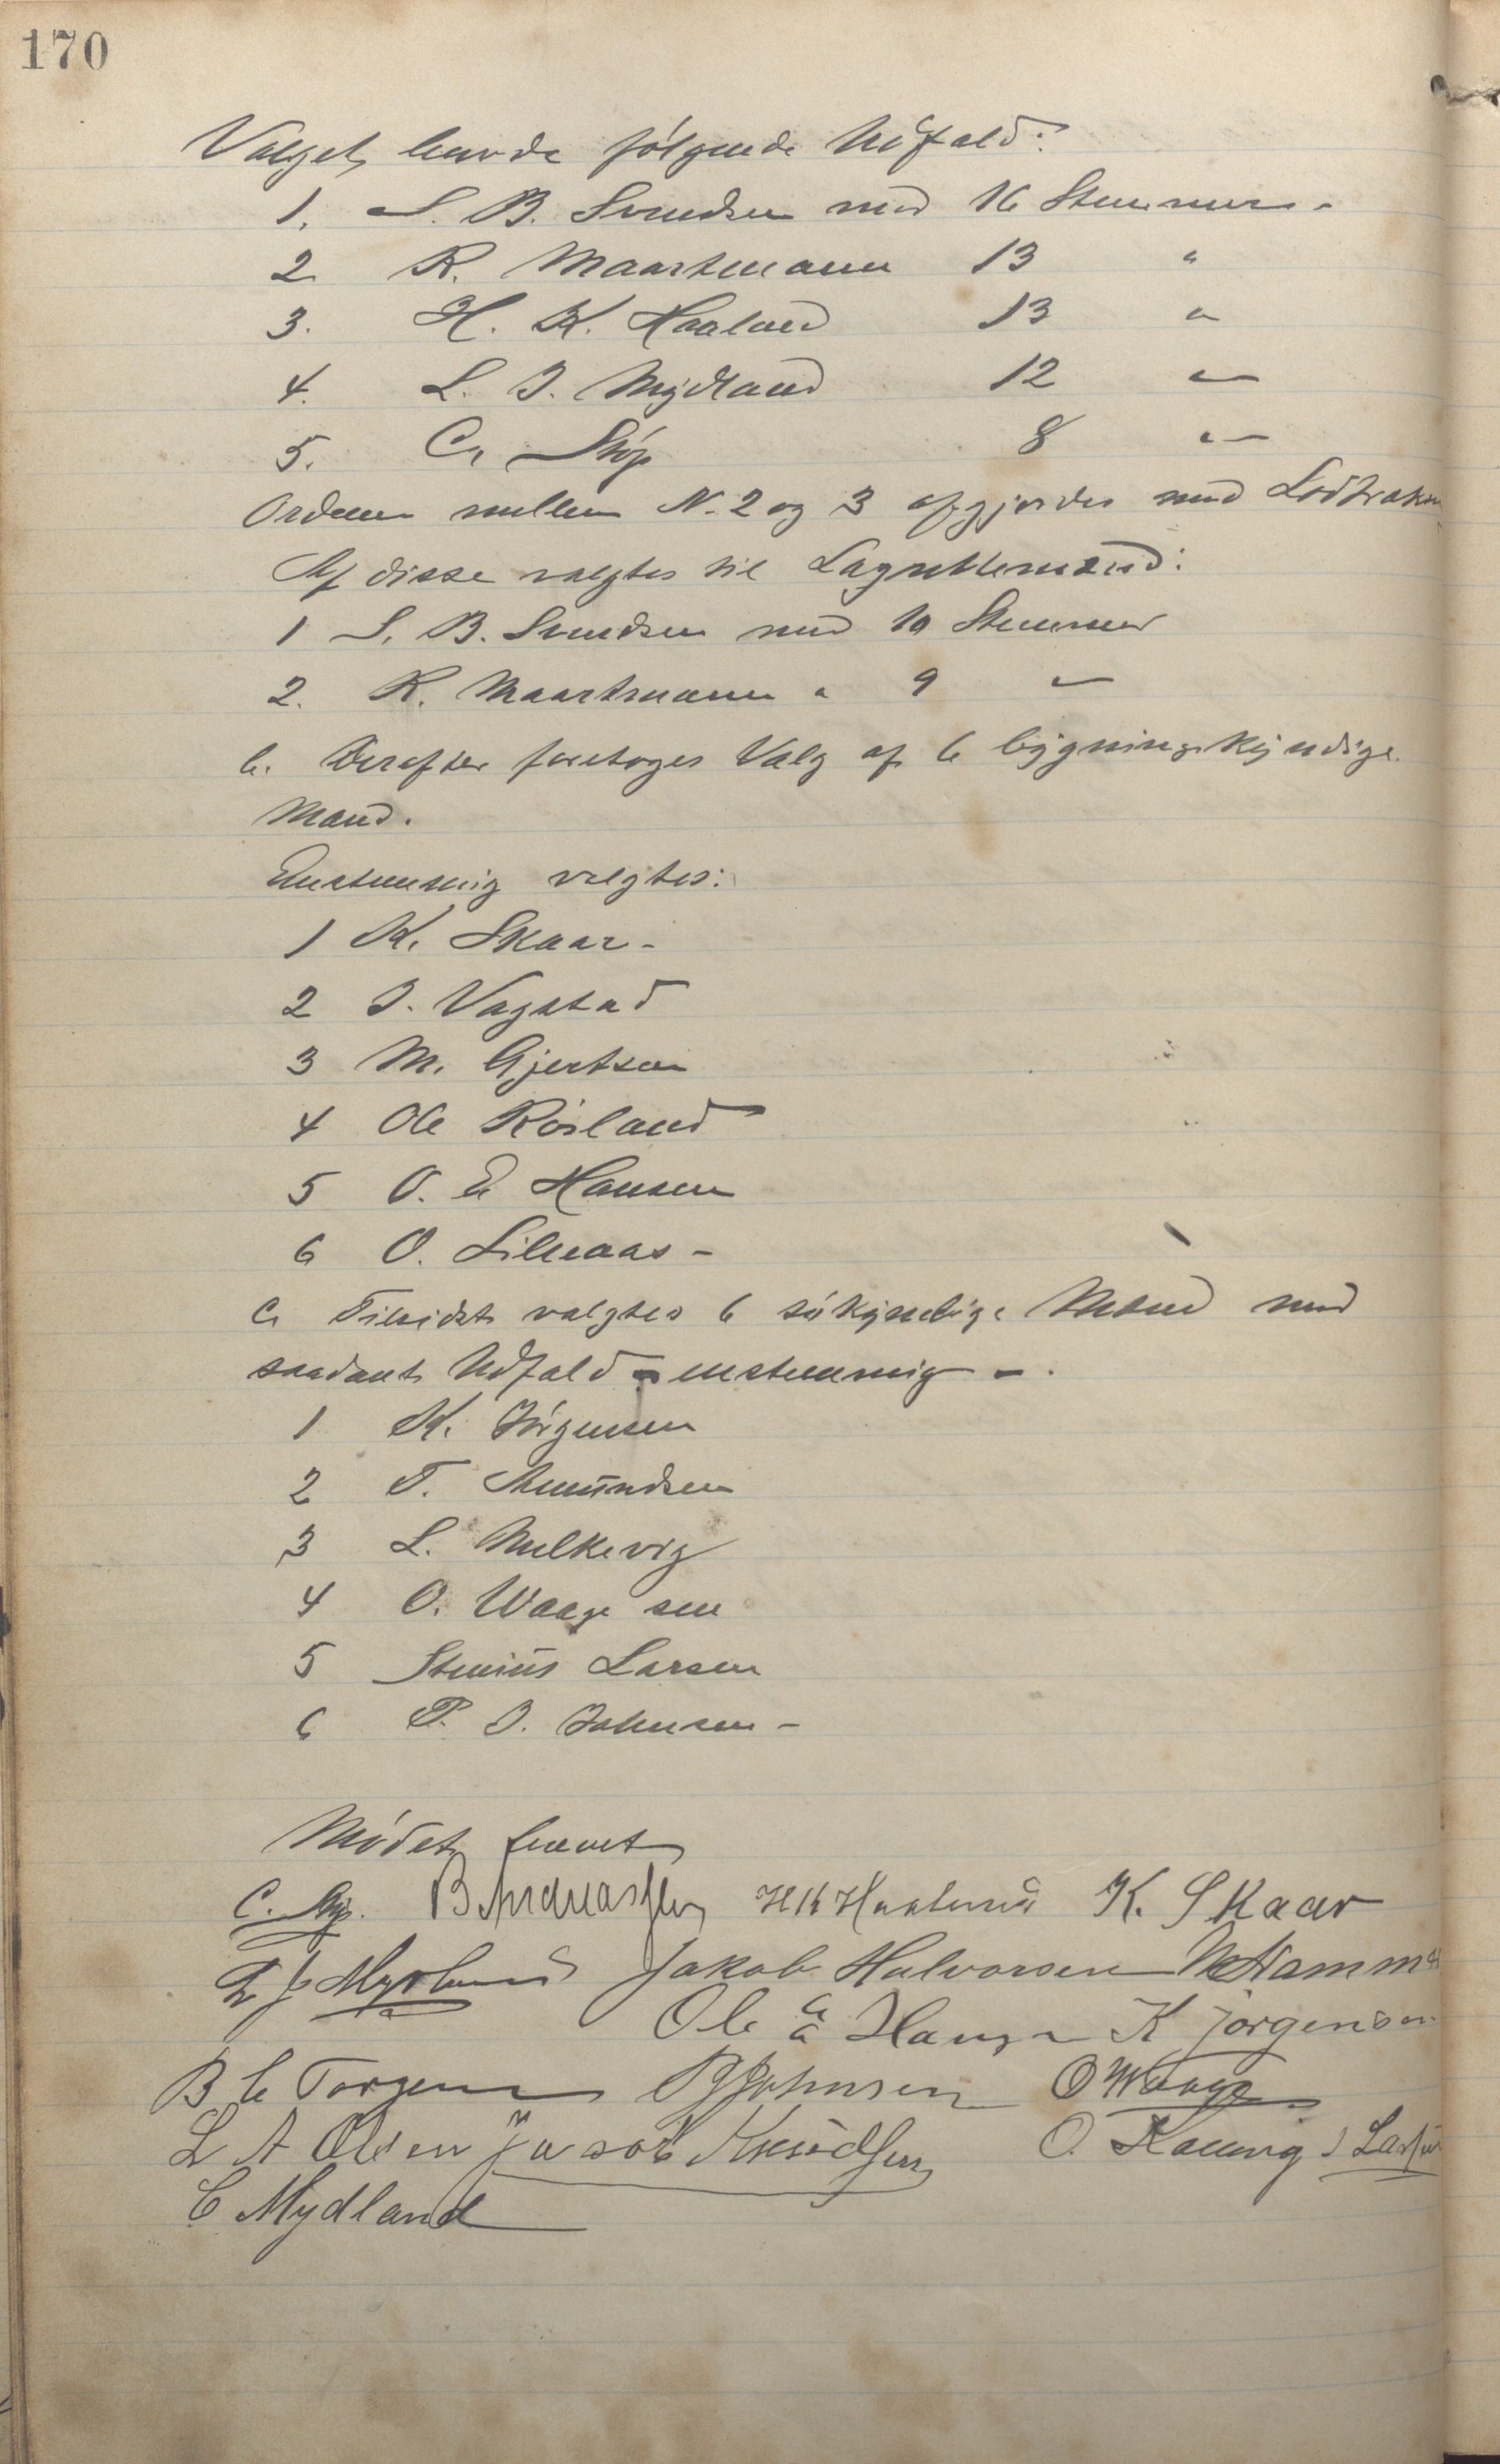 170
Valget havde følgende Udfald:
1. S. B. Svendsen med 16 Stemmer.
2. R. Maartmann 13 "
3. H. K. Haaland 13 "
4. L. J. Mydland 12 "
5. C. Støp 8 "
Ordenen mellem N. 2 og 3 afgjordes med Lodtrækn
Af disse valgtes til Lagrettemænd:
1 S. B. Svendsen med 10 Stemmer
2. R. Maartmann " 9 "
b. Derefter foretoges Valg af 6 bygningskyndige
Mænd.
Enstemmig valgtes:
1 K. Skaar -
2 J. Vagstad
3 M. Gjertsen
4 Ole Røiland
5 O. E Hansen
6 O. Lilleaas -
c. Tilsidst valgtes 6 søkyndige Mænd med
saadant Udfald - enstemmig -.
1 K. Jørgensen
2 T. Amundsen
3 L. Melkevig
4 O. Waage sen
5 Stenius Larsen
6 P. J. Johnsen -
Mødet hævet
C. Støp. B. Andreassen H K Haaland K. Skaar
L J Mydland Jakob Halvorsen Hamm
Ole E Hansen K Jørgensen
B C Torgersen P J Johnsen O Waage
L A Olsen Jacob Knudsen O. S Larsen
C Mydland